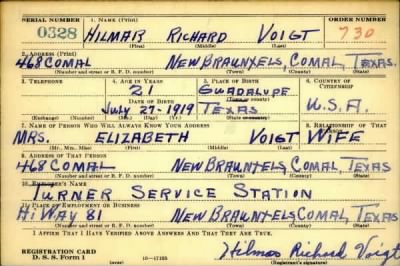 SERIAL NUMBER 1. NAME (Print) ORDER NUMBER
0328 HILMAR RICHARD VOIGT 730
(First) (Middle) (Last)
2. ADDRESS (Print)
468 COMAL NEW BRAUNFELS, COMAL, TEXAS.
(Number and street or R. F. D. number) (Town) (County) (State)
3. TELEPHONE 4. AGE IN YEARS 5. PLACE OF BIRTH 6. COUNTRY OF CITIZENSHIP
21 GUADALUPE
DATE OF BIRTH (Town or county)
JULY 27-1919 TEXAS U.S.A.
(Exchange) (Number) (Mo.) (Day) (Yr.) (State or country)
7. NAME OF PERSON WHO WILL ALWAYS KNOW YOUR ADDRESS 8. RELATIONSHIP OF THAT PERSON
MRS. ELIZABETH VOIGT WIFE
(Mr., Mrs., Miss) (First) (Middle) (Last)
9. ADDRESS OF THAT PERSON
468 COMAL NEW BRAUNFELS, COMAL, TEXAS
(Number and street or R. F. D. number) (Town) (County) (State)
10. EMPLOYER'S NAME
TURNER SERVICE STATION
11. PLACE OF EMPLOYMENT OR BUSINESS
HI WAY 81 NEW BRAUNFELS COMAL, TEXAS
(Number and street or R. F. D. number) (Town) (County) (State)
I AFFIRM THAT I HAVE VERIFIED ABOVE ANSWERS AND THAT THEY ARE TRUE.
REGISTRATION CARD
D. S. S. Form 1 16—17105 Hilmar Richard Voigt
(Registrant's signature)